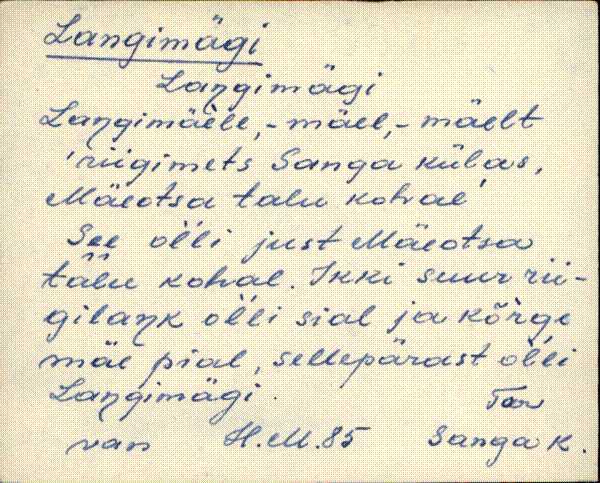 Langimägi
Laŋgimägi
Laŋgimäele, -mäel, -mäelt
'riigimets Sanga külas,
Mäeotsa talu kohal'
See òĺli just Mäeotsa
tàlu kohal. Ikki suur rii-
gilaŋk òĺli sial ja kõrge
mäe pial, sellepärast òĺli
Laŋgimägi.
van H.M.85 Sanga k.